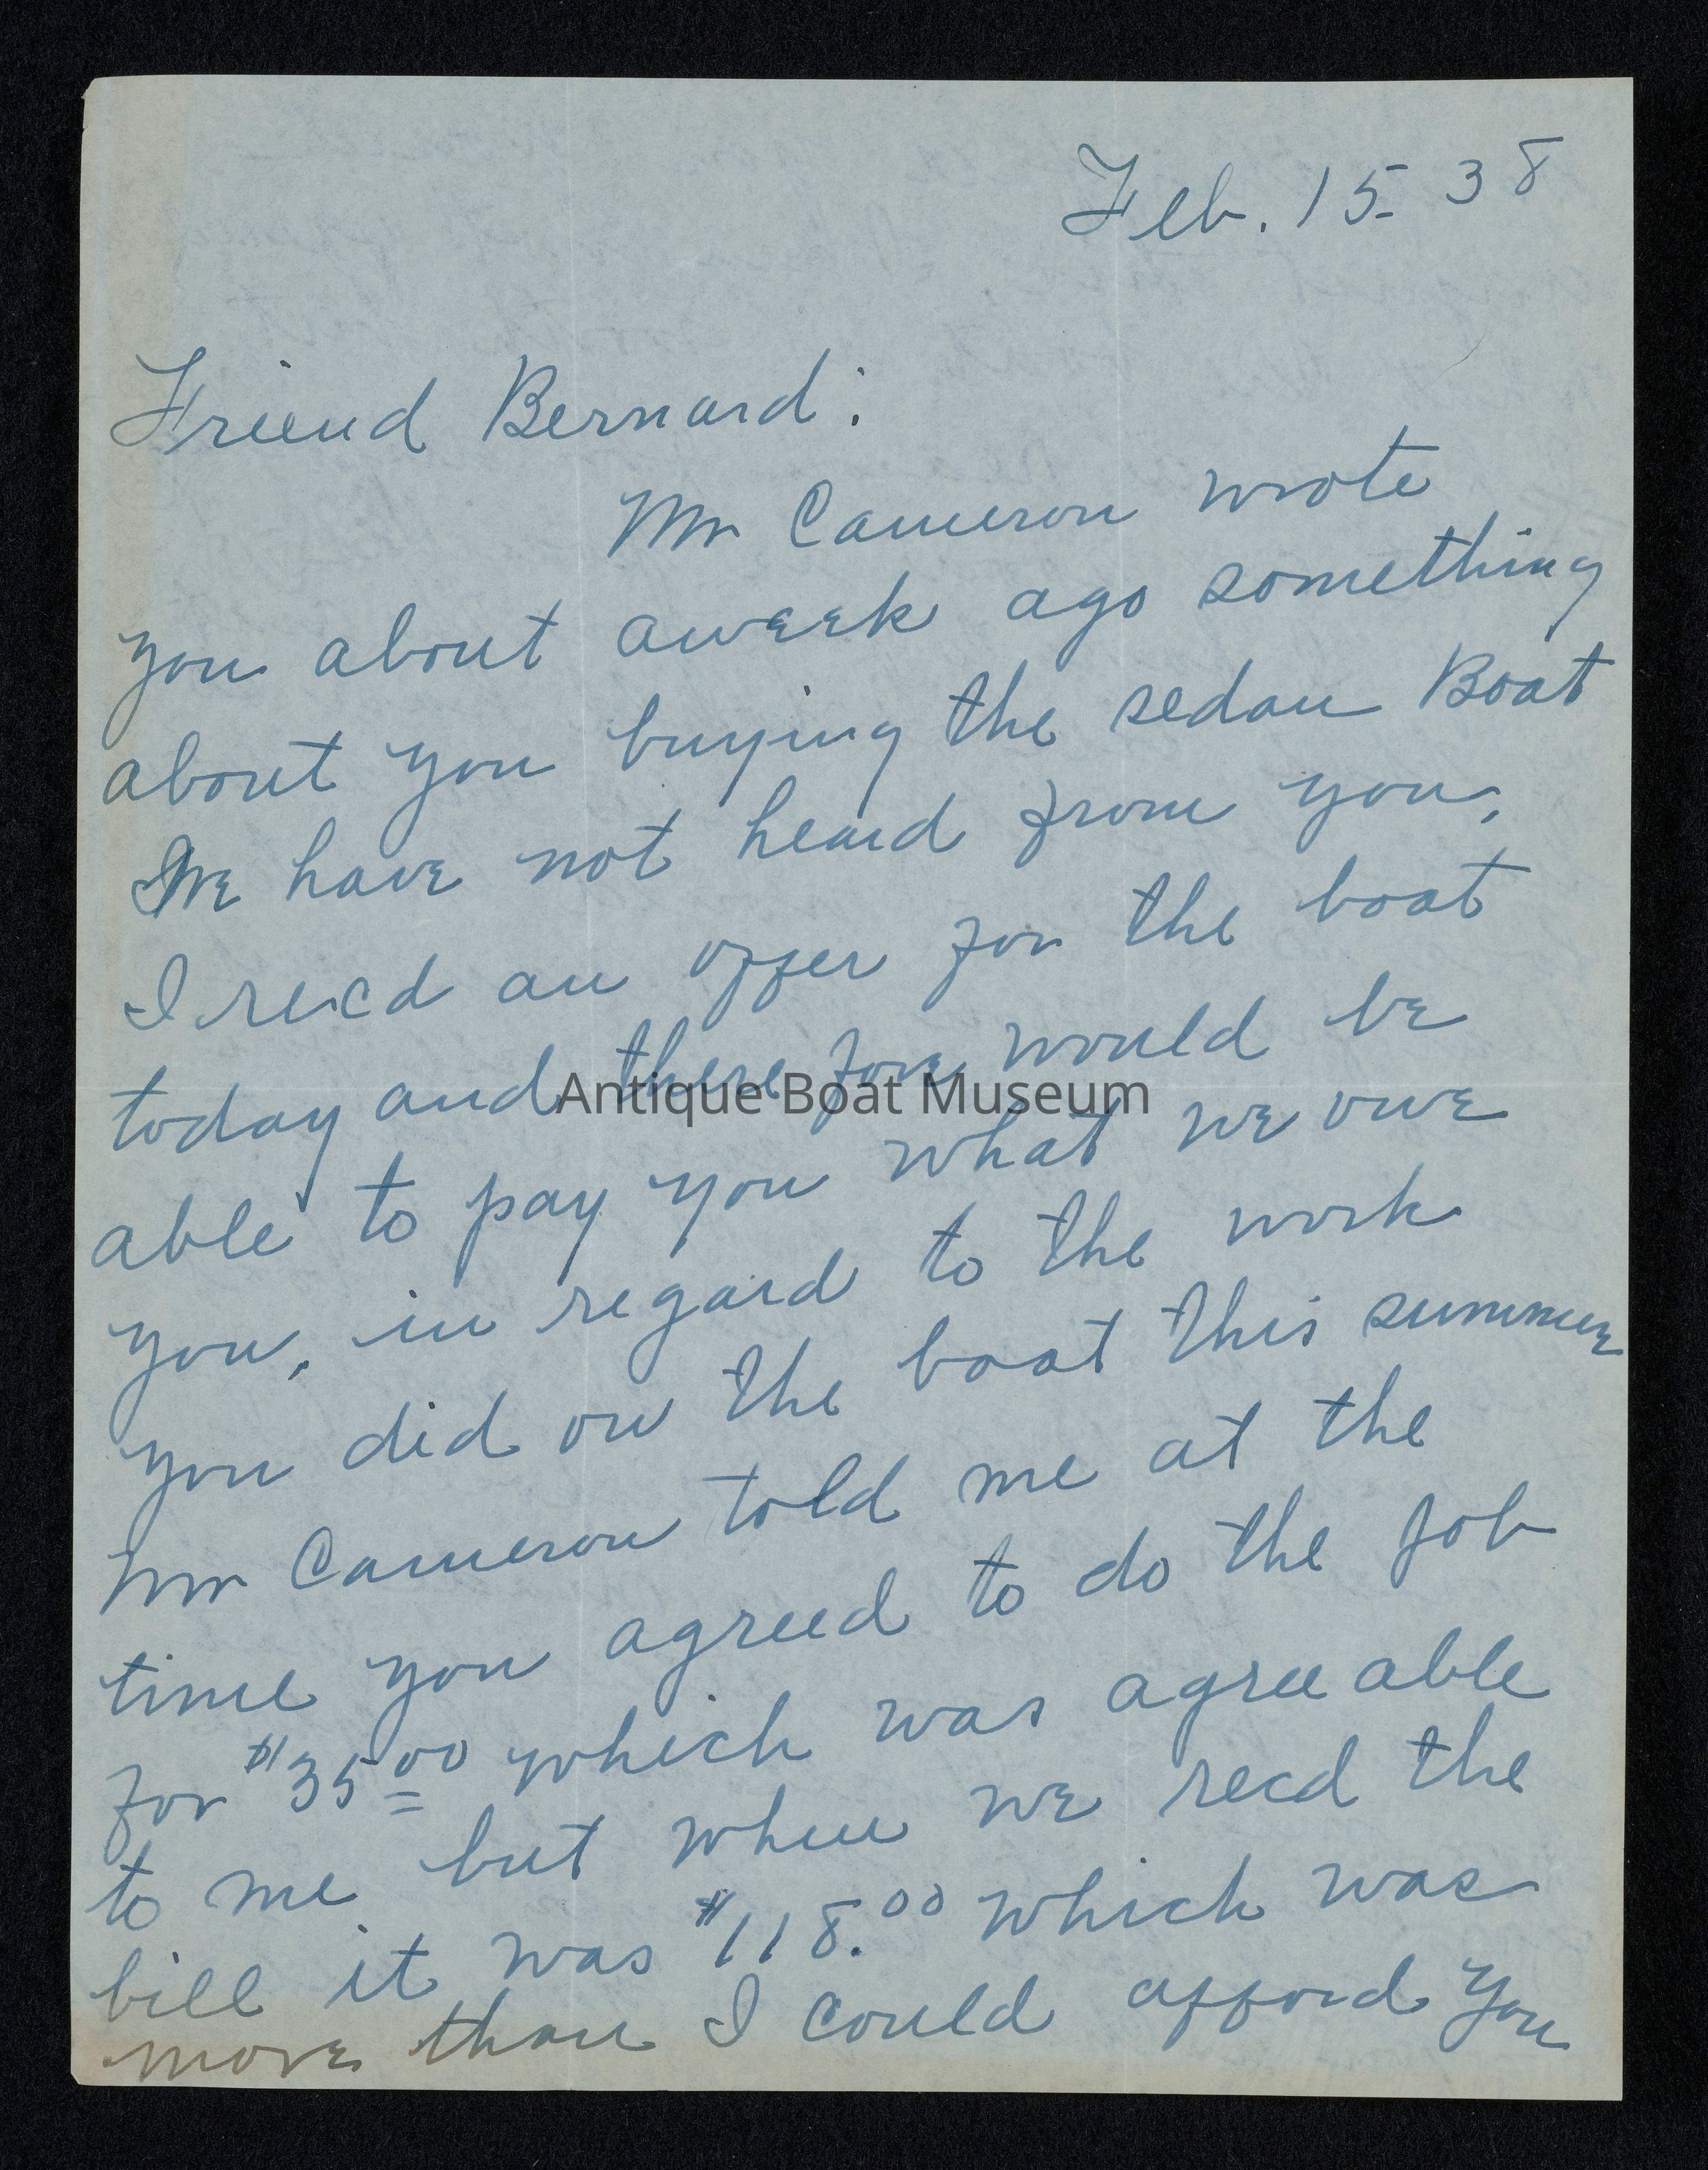 Feb. 15- 38
Friend Bernard:
Mr Cameron wrote
you about aweek ago something
about you buying the sedan Boat
We have not heard from you,
I recd an offer for the boat
today and there fore would be
Antique Boat Museum
able to pay you what we owe
you, in regard to the work
you did on the boat this summer
Mr Cameron told me at the
time you agreed to do the job
for $35.00 which was agree able
to me but when we recd the
bill it was $118.00 which was
more than I could afford you